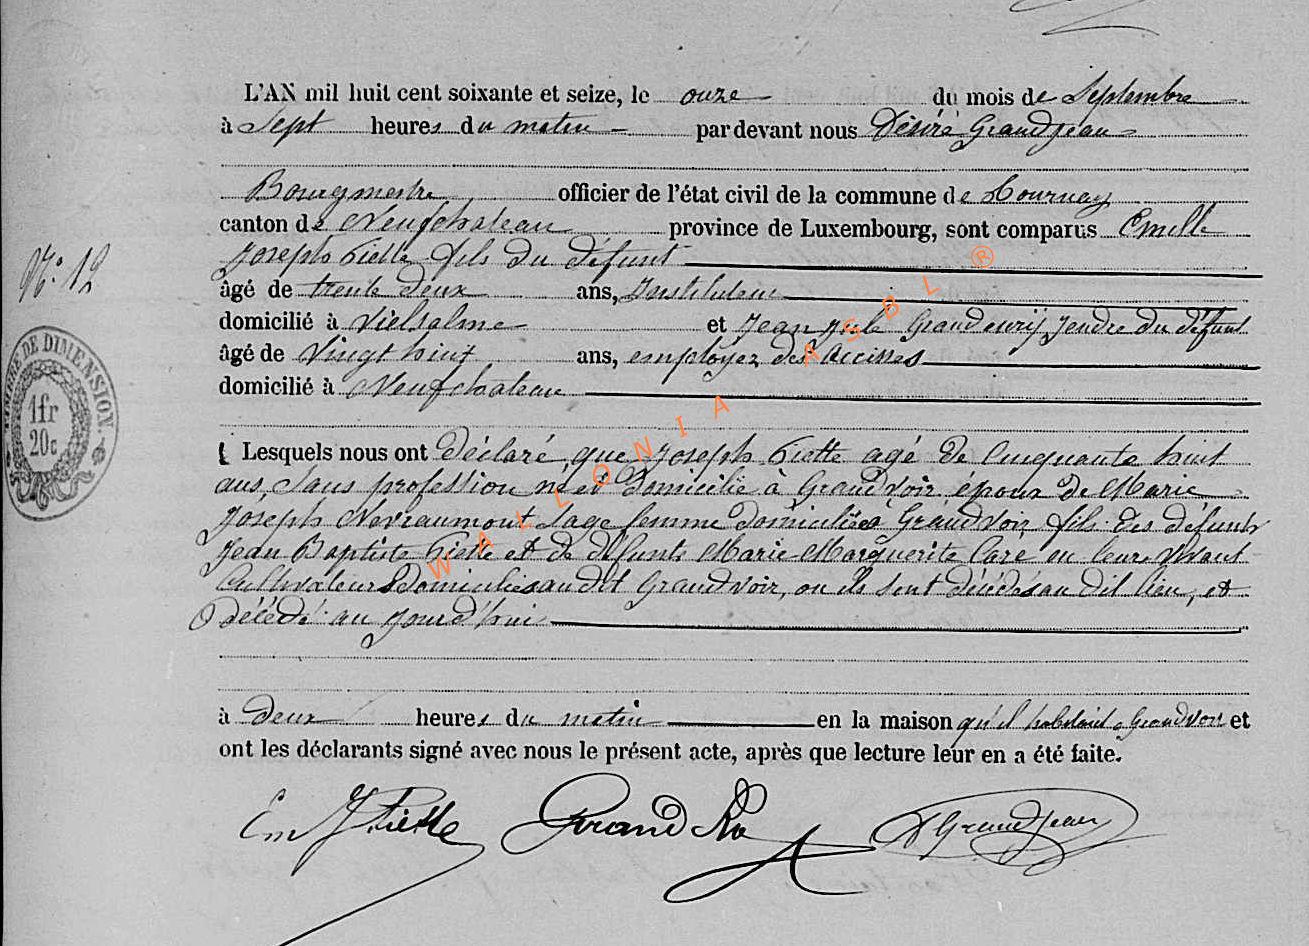 L'AN mil huit cent soixante et seize, le onze du mois de Septembre
à Sept heures du matin par devant nous Désiré Grandjean
Bourgmestre officier de l'état civil de la commune de Tournay
canton de Neufchateau province de Luxembourg, sont comparus Emille
Joseph Piette fils du défunt
N° 12
âgé de trente deux ans, Instituteur
domicilié à Vielsalm et Jean gendre du défunt
âgé de Vingt huit ans, employez des Accises
domicilié à Neufchateau
TIMBRE DE DIMENSION
1fr
20c
Lesquels nous ont déclaré, que Joseph Piette agé de Cinquante huit
ans, Sans profession né et Domicilié à Grandvoir, époux de Marie
Joseph Nevraumont Sage femme domiciliée à Grandvoir, fils des défunts
Jean Baptiste Piette et de défunte Marie-Marguerite en leurs vivant
Cultivateurs domiciliés au dit Grandvoir, ou ils sont décédés au dit lieu, et
décédé au jourd'hui
à deux heures du matin en la maison qu'il habitait à Grandvoir et
ont les déclarants signé avec nous le présent acte, après que lecture leur en a été faite.
Em J Piette D Grandjean
WALLONIA ASBL ®